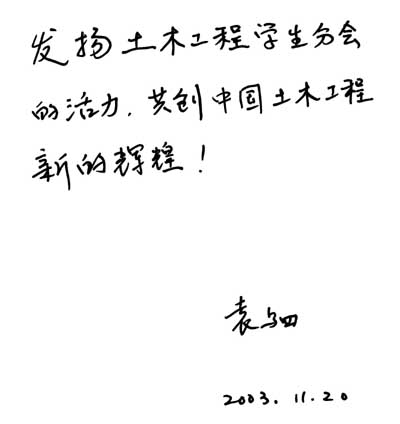 发扬土木工程学生分会
的活力，共创中国土木工程
新的辉煌！
袁驷
2003.11.20